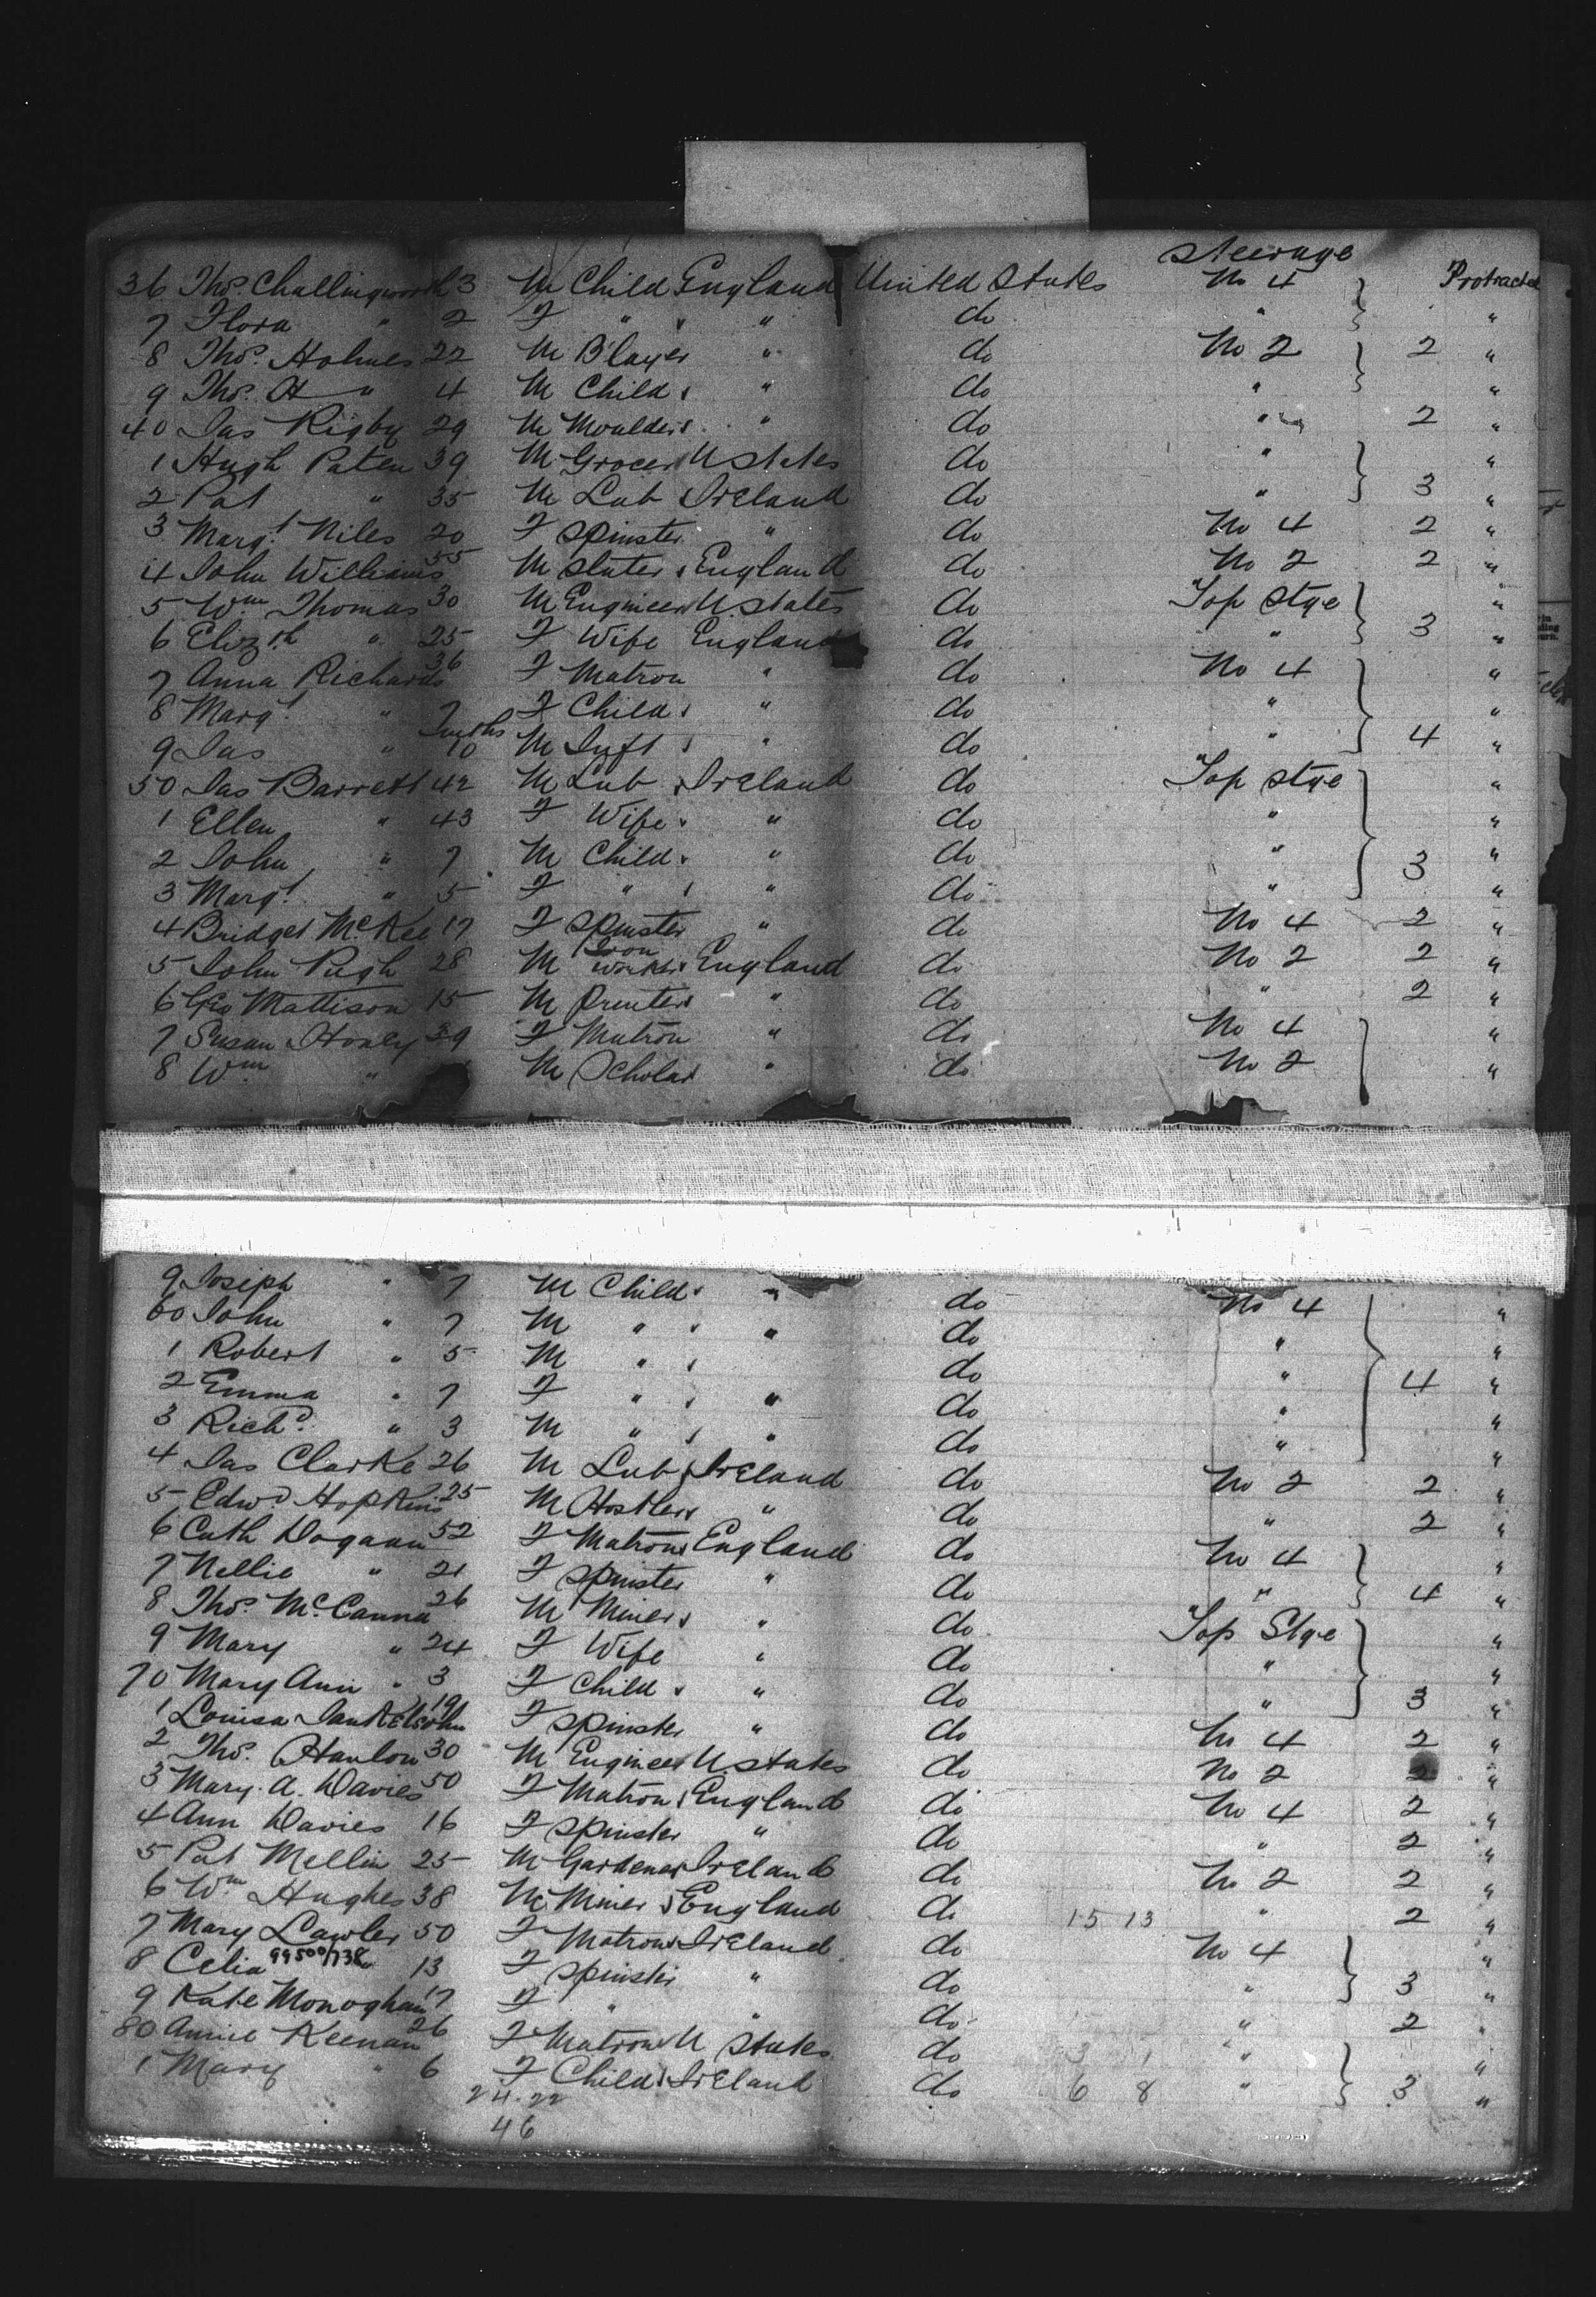 Steerage
36 Thos. Challingworth 3 M Child England United States No 4 Protracted
7 Flora " 2 F " " do " "
8 Thos. Holmes 22 M B'layer " do No 2 2 "
9 Thos. H " 4 M Child " do " "
40 Jas Rigby 29 M Moulder " do " 2 "
1 Hugh Paten 39 M Grocer U States do " "
2 Pat " 35 M Lab Ireland do " 3 "
3 Margt. Niles 20 F Spinster " do No 4 2 "
4 John Williams 55 M Slater England do No 2 2 "
5 Wm Thomas 30 M Engineer U States do Top Stge "
6 Elizth " 25 F Wife England do " 3 "
7 Anna Richards 36 F Matron " do No 4 "
8 Margt. " 7 F Child " do " "
9 Jas " 10 mths M Inft " do " 4 "
50 Jas Barrett 42 M Lab Ireland do Top Stge "
1 Ellen " 43 F Wife " do " "
2 John " 7 M Child " do " 3 "
3 Margt. " 5 F " " do " "
4 Bridget McKee 17 F Spinster " do No 4 2 "
5 John Pugh 28 M Iron Worker England do No 2 2 "
6 Geo Mattison 15 M Printer " do " 2 "
7 Susan Honey 39 F Matron " do No 4 "
8 Wm " M Scholar " do No 2 "
9 Joseph " 7 M Child " do No 4 "
60 John " 7 M " " do " "
1 Robert " 5 M " do " 4 "
2 Emma " 7 F " " do " "
3 Richd. " 3 M " " do " "
4 Jas Clarke 26 M Lab Ireland do No 2 2 "
5 Edwd Hopkins 25 M Hostler " do " 2 "
6 Cath Dogann 52 F Matron England do No 4 "
7 Nellie " 21 F Spinster " do " 4 "
8 Thos. McCanna 26 M Miner " do Top Stge "
9 Mary " 24 F Wife " do " "
70 Mary Ann " 3 F Child " do " 3 "
1 Louisa 19 F Spinster " do No 4 2 "
2 Thos. Hanlon 30 M Engineer U States do No 2 2 "
3 Mary. A. Davies 50 F Matron England do No 4 2 "
4 Ann Davies 16 F Spinster " do " 2 "
5 Pat Mellin 25 M Gardener Ireland do No 2 2 "
6 Wm Hughes 38 M Miner England do 15 13 " 2 "
7 Mary Lawler 50 F Matron Ireland do No 4 "
8 Celia 99500/738 " 13 F Spinster " do " 3 "
9 Kate Monoghan 17 F " " do " 2 "
80 Annie Keenan 26 F Matron U States do 3 1 " "
1 Mary " 6 F Child Ireland do 6 8 " 3 "
24.22
46